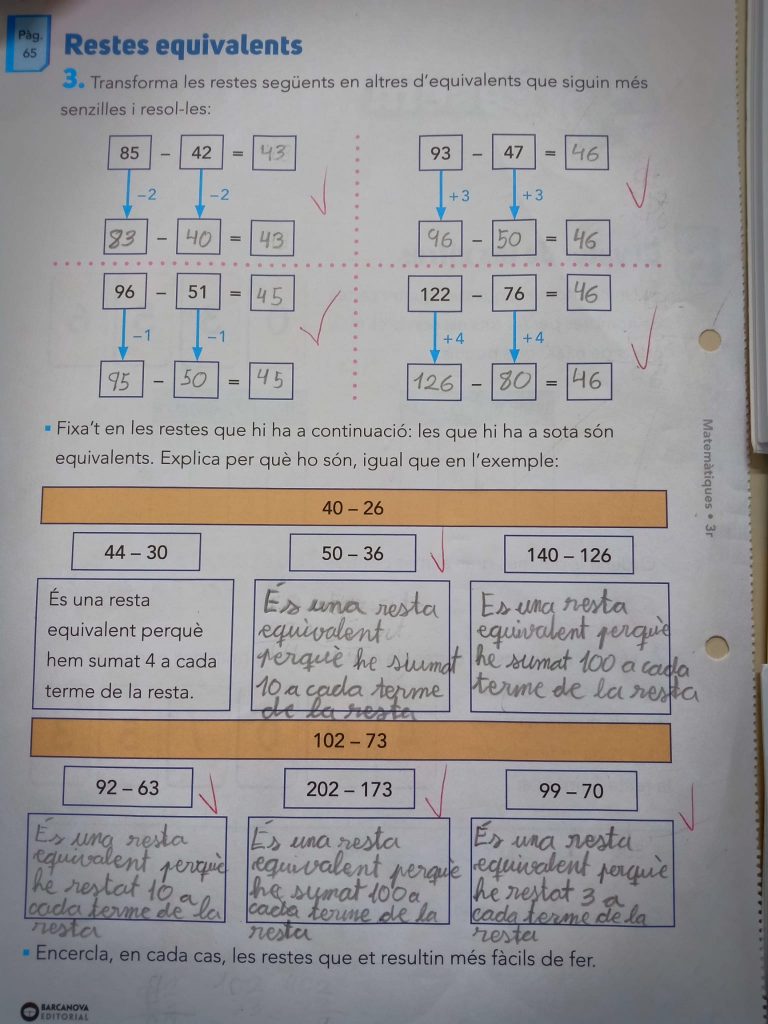 Pàg.
65
Restes equivalents
3. Transforma les restes següents en altres d'equivalents que siguin més
senzilles i resol-les:
85 – 42 = 43
–2 –2
83 – 40 = 43
93 – 47 = 46
+3 +3
96 – 50 = 46
96 – 51 = 45
–1 –1
95 – 50 = 45
122 – 76 = 46
+4 +4
126 – 80 = 46
Fixa't en les restes que hi ha a continuació: les que hi ha a sota són
equivalents. Explica per què ho són, igual que en l'exemple:
40 – 26
44 – 30
És una resta
equivalent perquè
hem sumat 4 a cada
terme de la resta.
50 – 36
És una resta
equivalent
perquè he siumat
10 a cada terme
de la resta
140 – 126
És una resta
equivalent perquè
he sumat 100 a cada
terme de la resta
102 – 73
92 – 63
És una resta
equivalent perquè
he restat 10 a
cada terme de la
resta
202 – 173
És una resta
equivalent perquè
he sumat 100 a
cada terme de la
resta
99 – 70
És una resta
equivalent perquè
he restat 3 a
cada terme de la
resta
Encercla, en cada cas, les restes que et resultin més fàcils de fer.
Matemàtiques • 3r
BARCANOVA
EDITORIAL